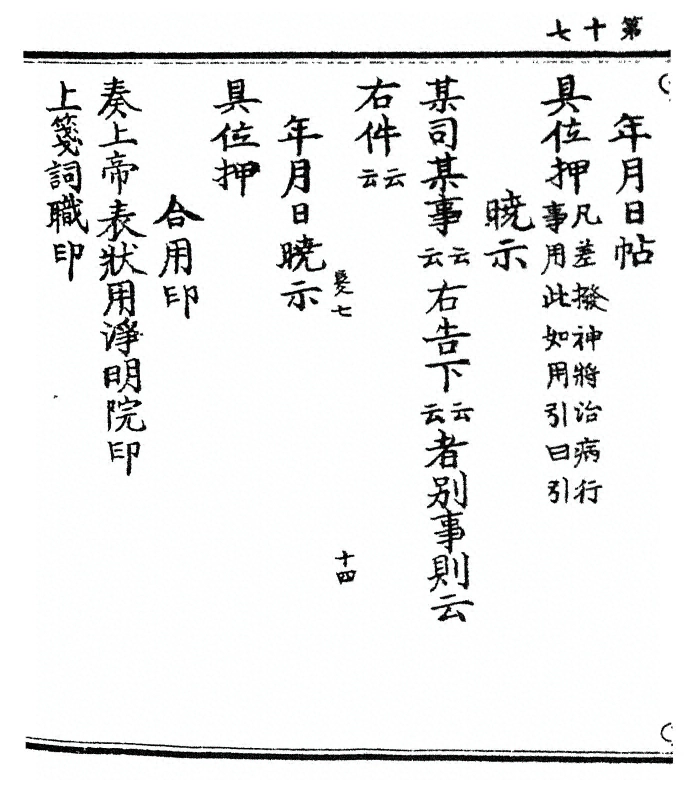 第十七
年月日帖
具位押凡差撥神將治病行
事用此如用引曰引
曉示
某司某事云云右告下云云者別事則云
右件云云
十四
年月日曉示
具位押
合用印
奏上帝表狀用淨明院印
上箋詞職印